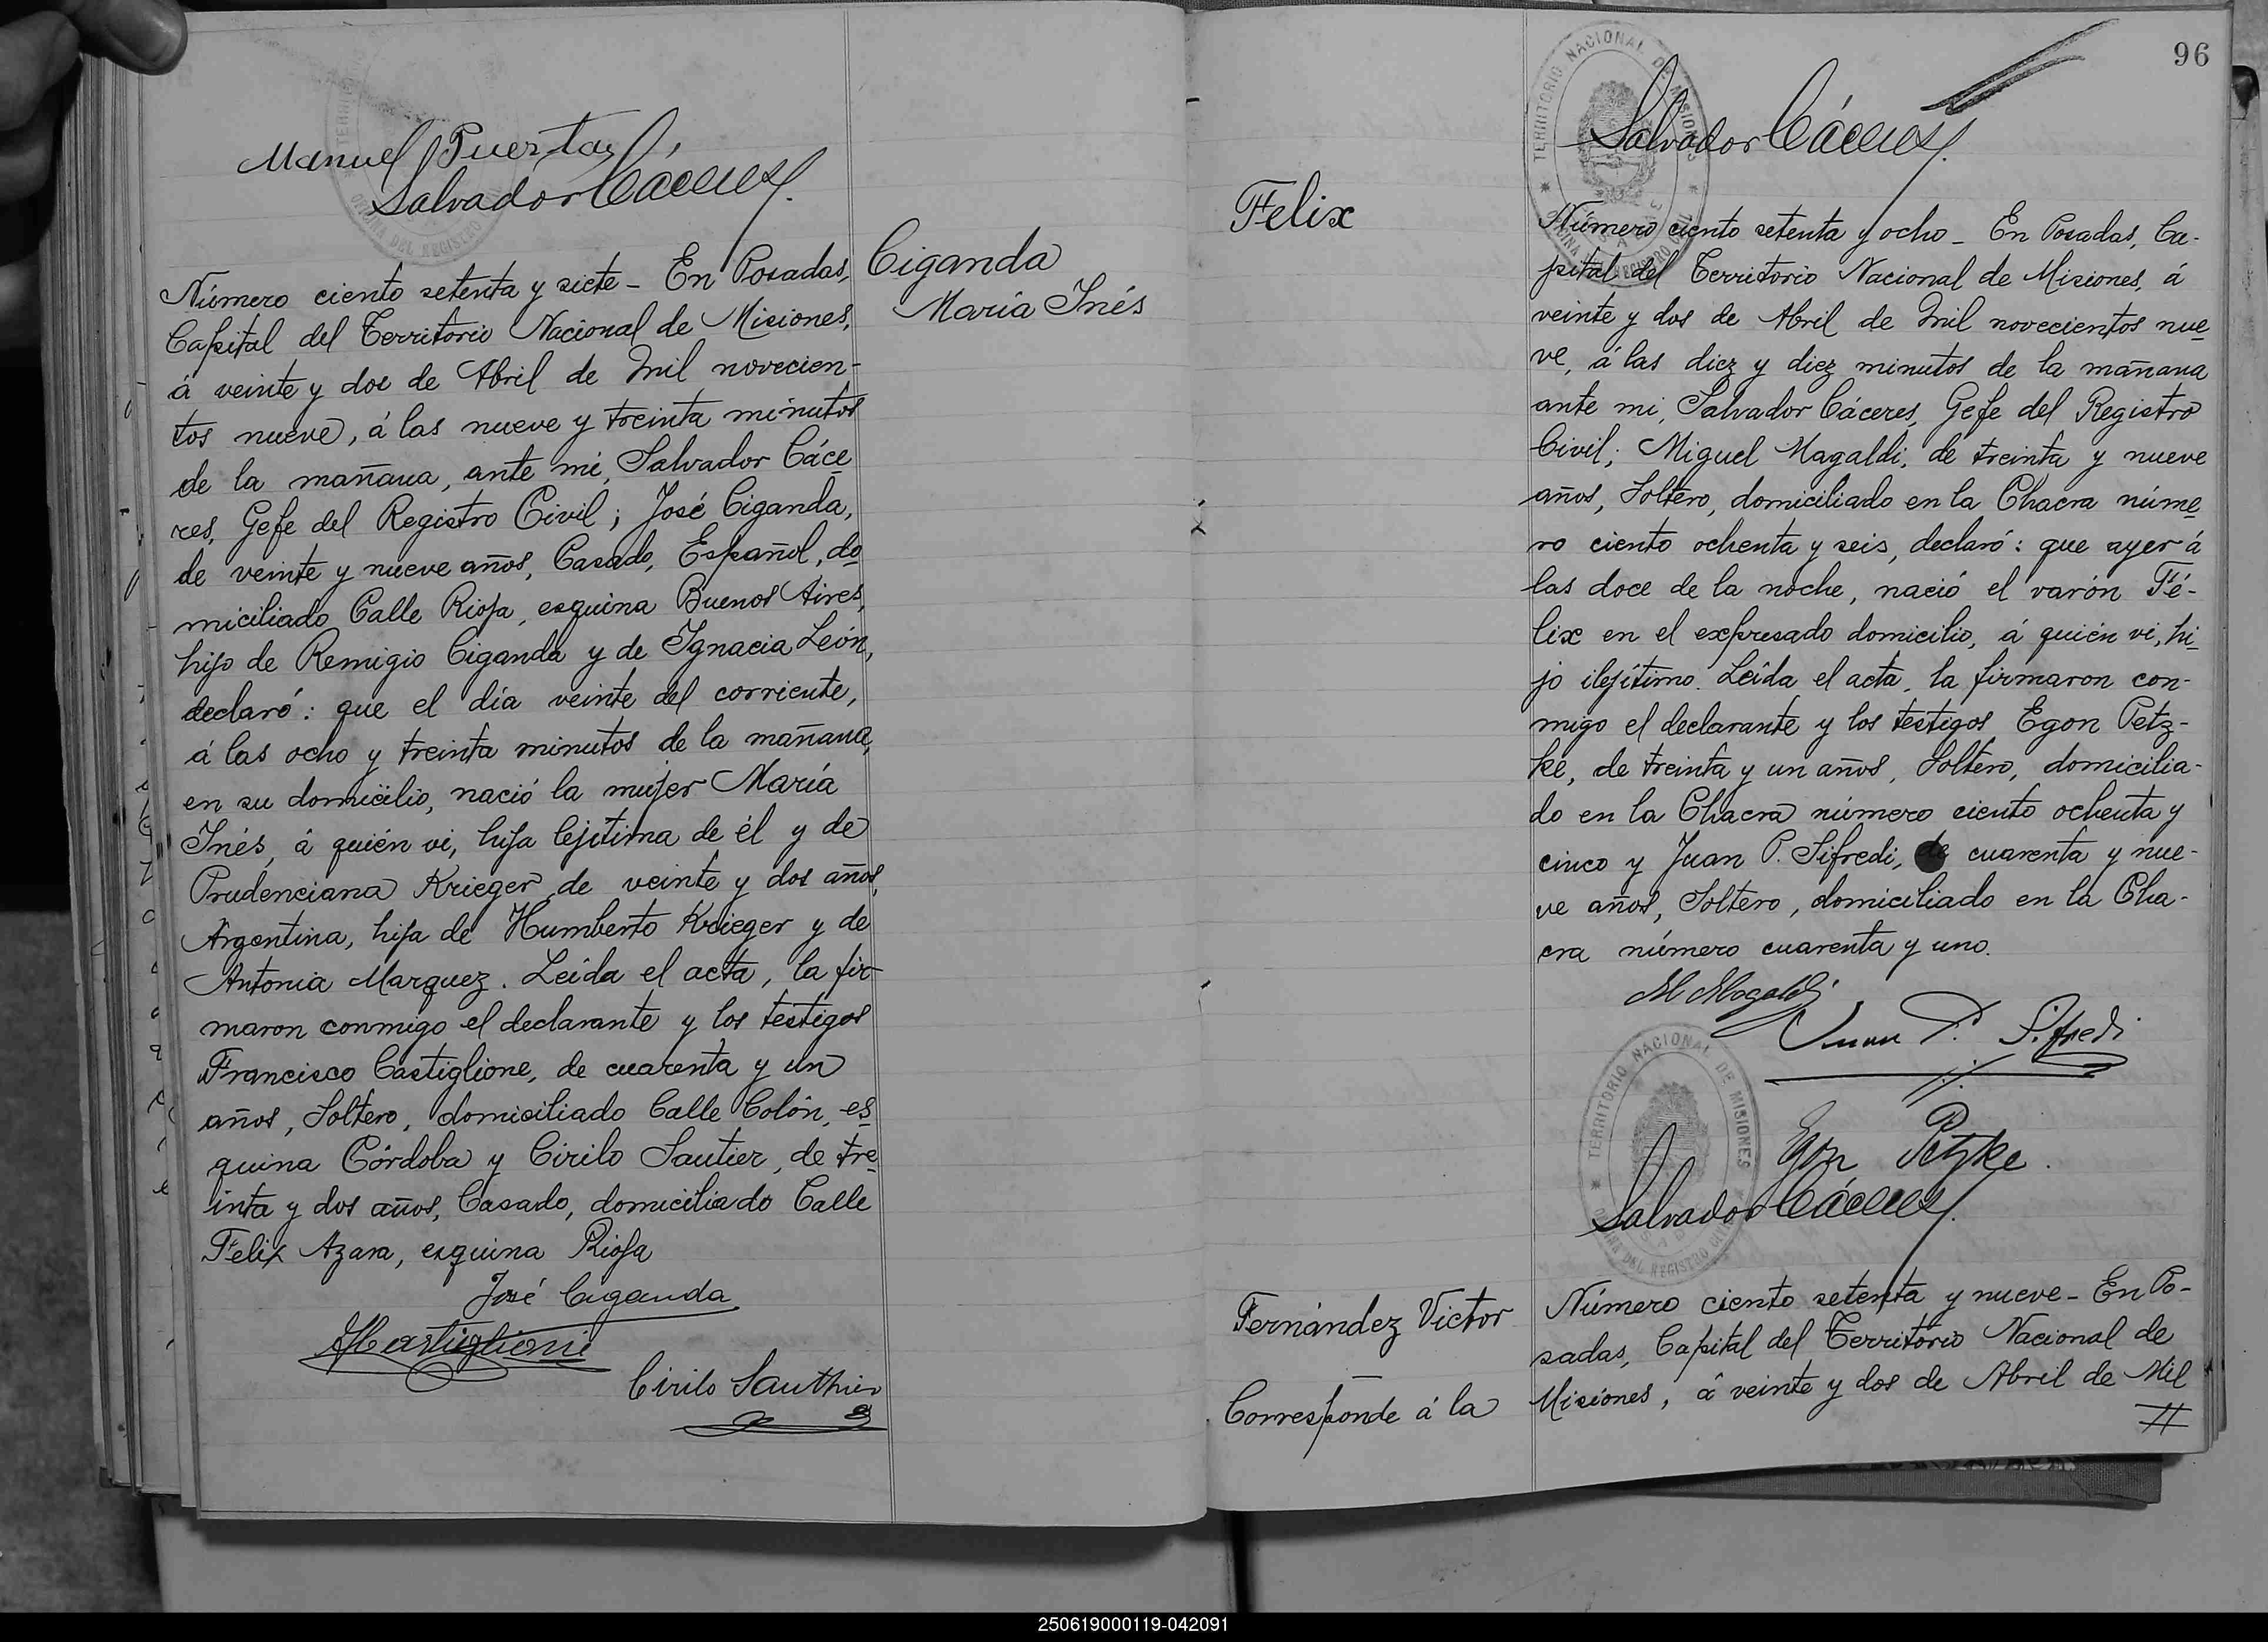 Manuel Puertas
Salvador Cáceres
Número ciento setenta y siete - En Posadas,
Capital del Territorio Nacional de Misiones,
á veinte y dos de Abril de Mil novecien-
tos nueve, á las nueve y treinta minutos
de la mañana, ante mi, Salvador Cáce
res, Gefe del Registro Civil; José Ciganda,
de veinte y nueve años, Casado, Español, do
miciliado Calle Rioja, esquina Buenos Aires,
hijo de Remigio Ciganda y de Ignacia León,
declaró: que el día veinte del corriente,
á las ocho y treinta minutos de la mañana,
en su domicilio, nació la mujer María
Inés, á quién vi, hija lejítima de él y de
Prudenciana Krieger de veinte y dos años,
Argentina, hija de Humberto Krieger y de
Antonia Marquez. Leída el acta, la fir-
maron conmigo el declarante y los testigos
Francisco Castiglione, de cuarenta y un
años, Soltero, domiciliado Calle Colón, es
quina Córdoba y Cirilo Sautier, de tre
inta y dos años, Casado, domiciliado Calle
Felix Azara, esquina Rioja
José Ciganda
FCastiglioni
Cirilo Sauthier
Ciganda
María Inés
96
TERRITORIO NACIONAL DE MISIONES
OFICINA DEL REGISTRO CIVIL
Salvador Cáceres
Felix
Número ciento setenta y ocho - En Posadas, Ca-
pital del Territorio Nacional de Misiones, á
veinte y dos de Abril de Mil novecientos nue
ve, á las diez y diez minutos de la mañana
ante mi, Salvador Cáceres, Gefe del Registro
Civil; Miguel Magaldi, de treinta y nueve
años, Soltero, domiciliado en la Chacra núme
ro ciento ochenta y seis, declaró: que ayer á
las doce de la noche, nació el varón Fé-
lix en el expresado domicilio, á quién vi, hi
jo ilejítimo. Leída el acta, la firmaron con-
migo el declarante y los testigos Egon Petz-
ke, de treinta y un años, Soltero, domicilia-
do en la Chacra número ciento ochenta y
cinco y Juan P. Sifredi, de cuarenta y nue-
ve años, Soltero, domiciliado en la Cha-
cra número cuarenta y uno.
M Magaldi
Juan P. Sifredi
Egon Petzke.
TERRITORIO NACIONAL DE MISIONES
OFICINA DEL REGISTRO CIVIL
Salvador Cáceres
Fernández Victor
Corresponde á la
Número ciento setenta y nueve - En Po-
sadas, Capital del Territorio Nacional de
Misiones, á veinte y dos de Abril de Mil
250619000119-042091